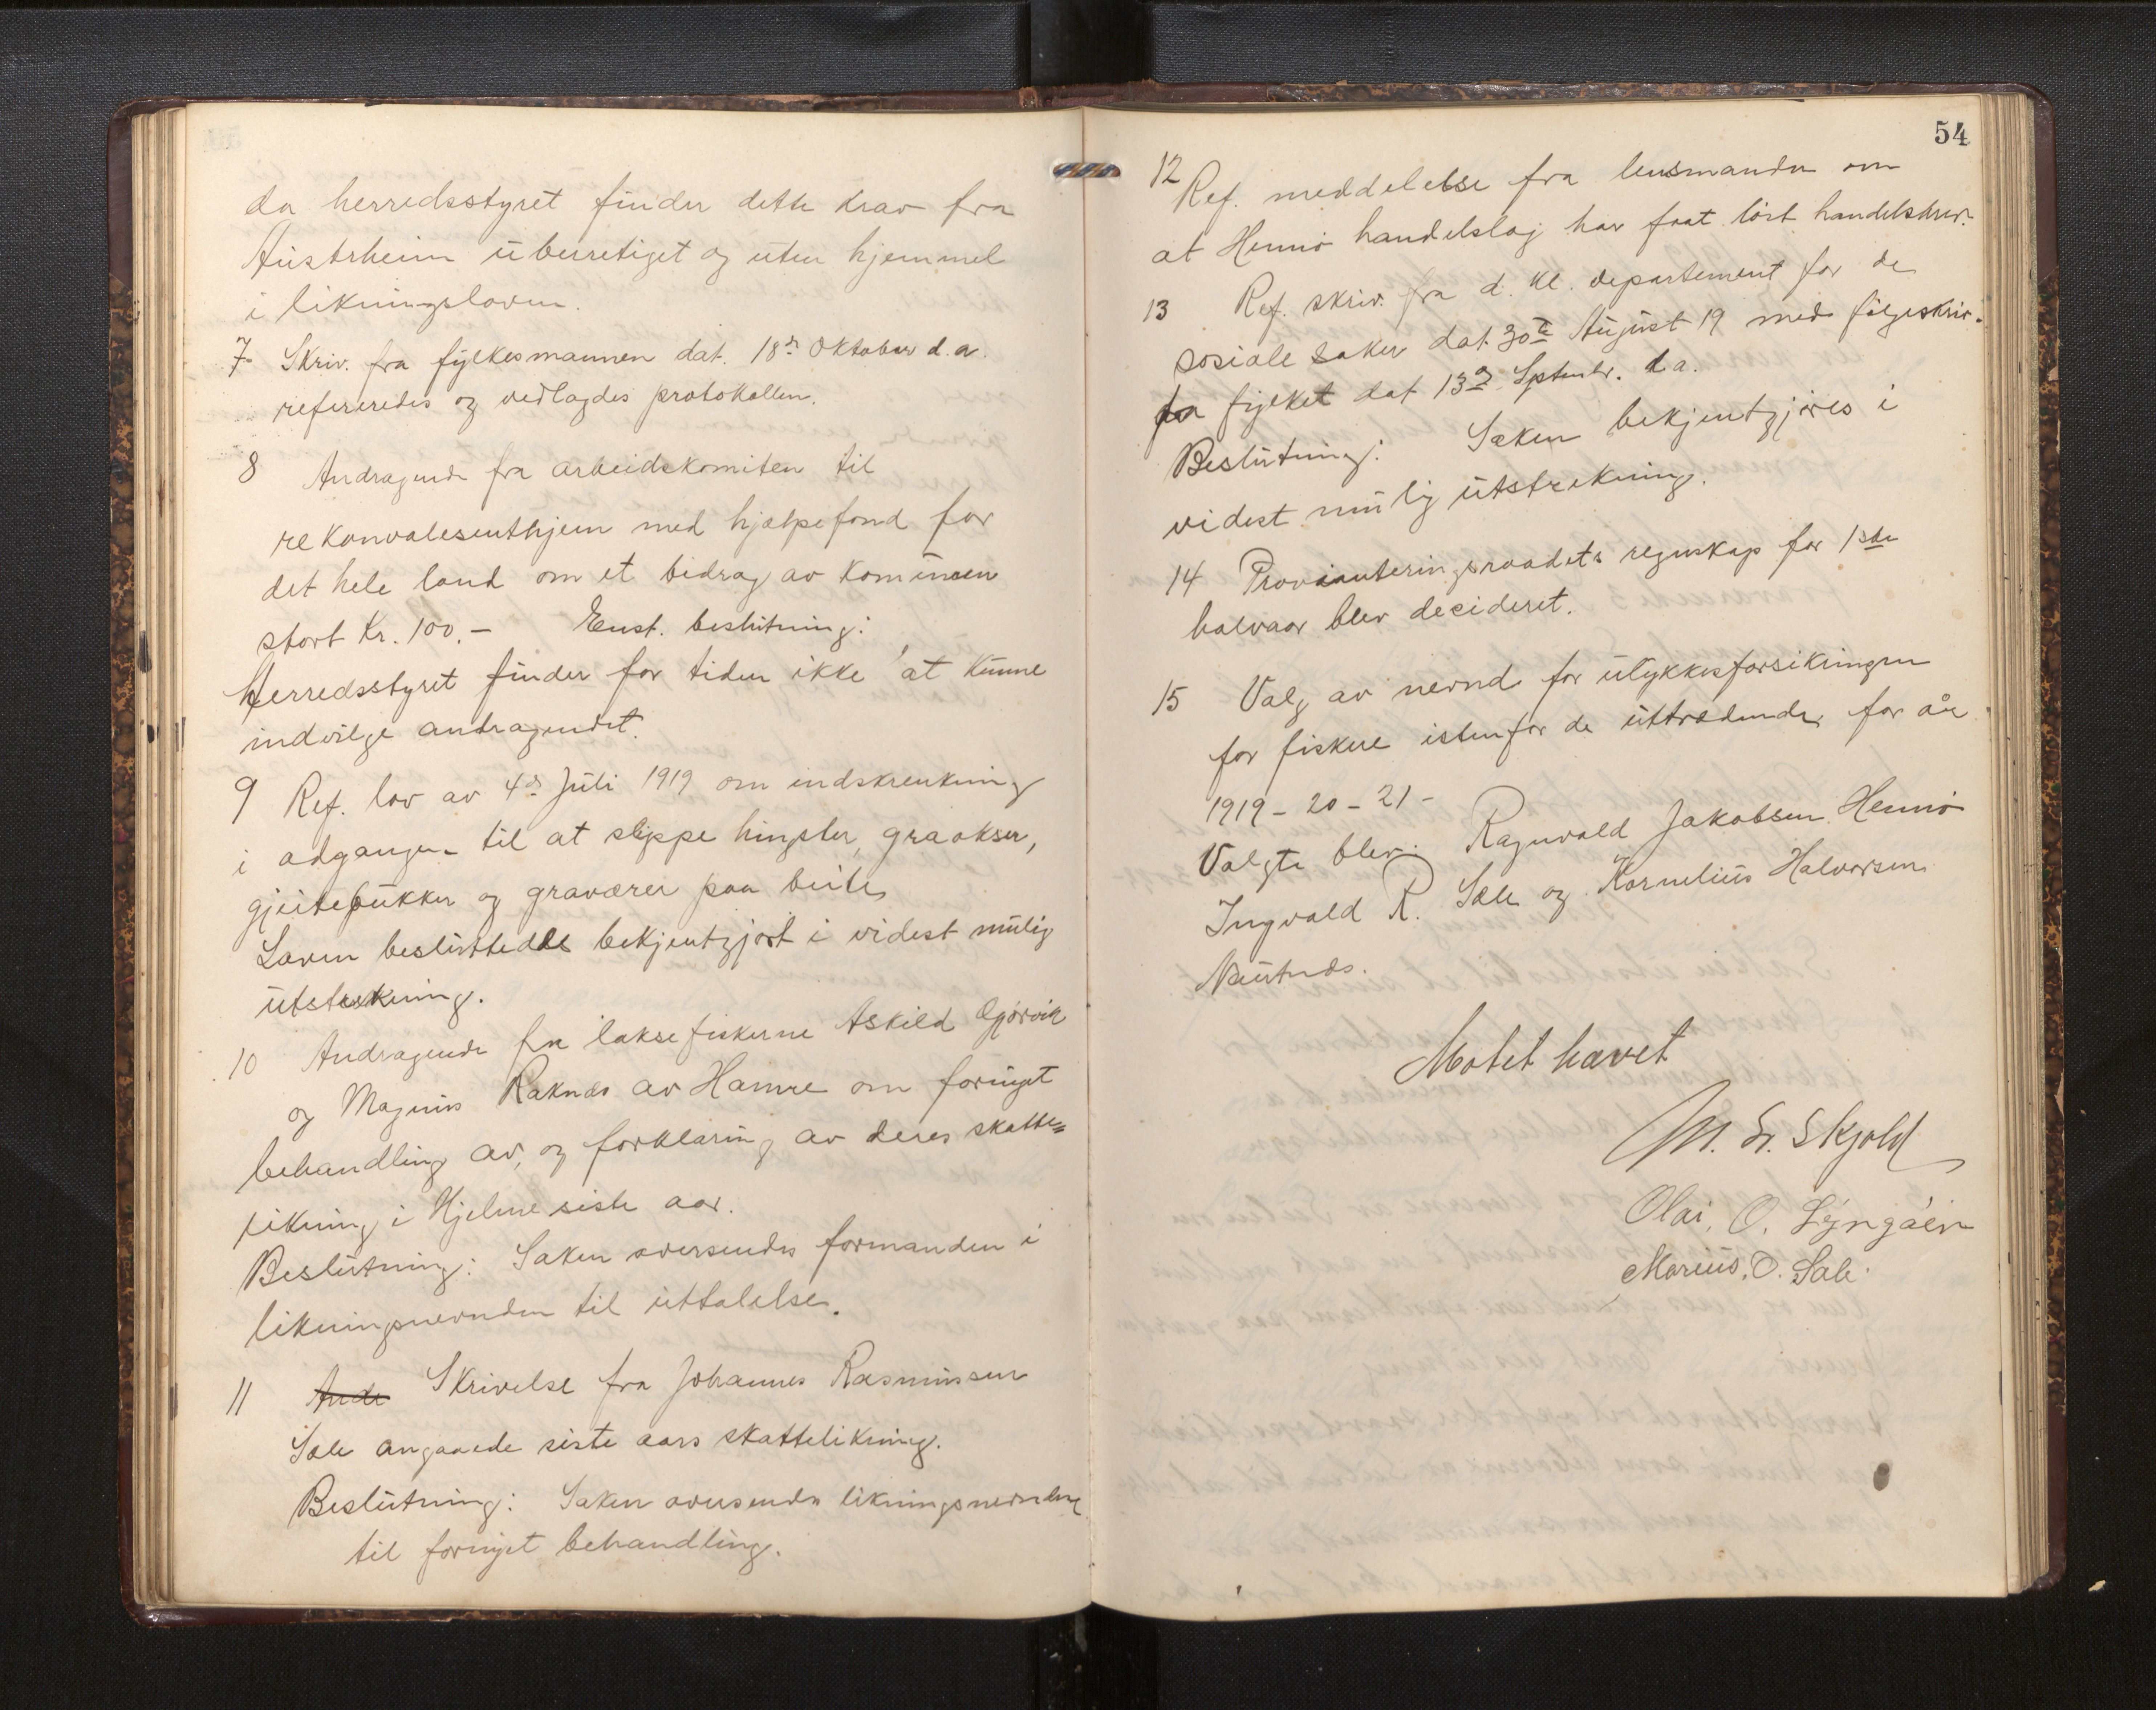 da herredsstyret finder dette krav fra
Austrheim uberretiget og uten hjemmel
i likningsloven.
7 Skriv. fra fylkesmannen dat. 18de Oktober d.a.
refereredes og vedlagdes protokollen.
8 Andragende fra arbeidskomiten til
rekonvalesenthjem med hjælpefond for
det hele land om et bidrag av komunen
stort Kr. 100.- Enst. beslutning:
Herredsstyret finder for tiden ikke at kunne
indvilge andragendet.
9 Ref. lov av 4de Juli 1919 om indskrenkning
i adgangen til at slippe hingster, graokser,
gjeitebukker og graværer paa beite,
Loven besluttedes bekjentgjort i videst mulig
utstrekning.
10 Andragende fra laksefiskerne Askild Gjørvik
og Magnus Raknæs av Hamre om fornyet
behandling av, og forklaring av deres skatte=
likning i Hjelme siste aar.
Beslutning: Saken oversendes formanden i
likningsnevnden til uttalelse.
11 Ande Skrivelse fra Johannes Rasmussen
Sæle angaaede siste aars skattelikning.
Beslutning: Saken oversendes likningsnevnden
til fornyet behandling.
54
12 Ref. meddelelse fra lensmanden om
at Hennø handelslag har faat løst handelsbrev.
13 Ref. skriv. fra d. kl. departement for de
sosiale saker dat. 30te August 19 med følgeskriv.
fra fylket dat 13de Septembr. d.a.
Beslutning: Saken bekjentgjøres i
videst mulig utstrekning.
14 Provianteringsraadets regnskap for 1ste
halvaar blev decideret.
15 Valg av nevnd for ulykkesforsikringen
for fiskere istenfor de uttrædende, for år
1919 - 20 - 21 -
Valgte blev: Ragnvald Jakobsen Hennø
Ingvald R. Sæle og Kornelius Halvorsen
Nautnes.
Møtet hævet
M. Skjold
Olai. O. Lyngøen
Marius. O. Sæle.